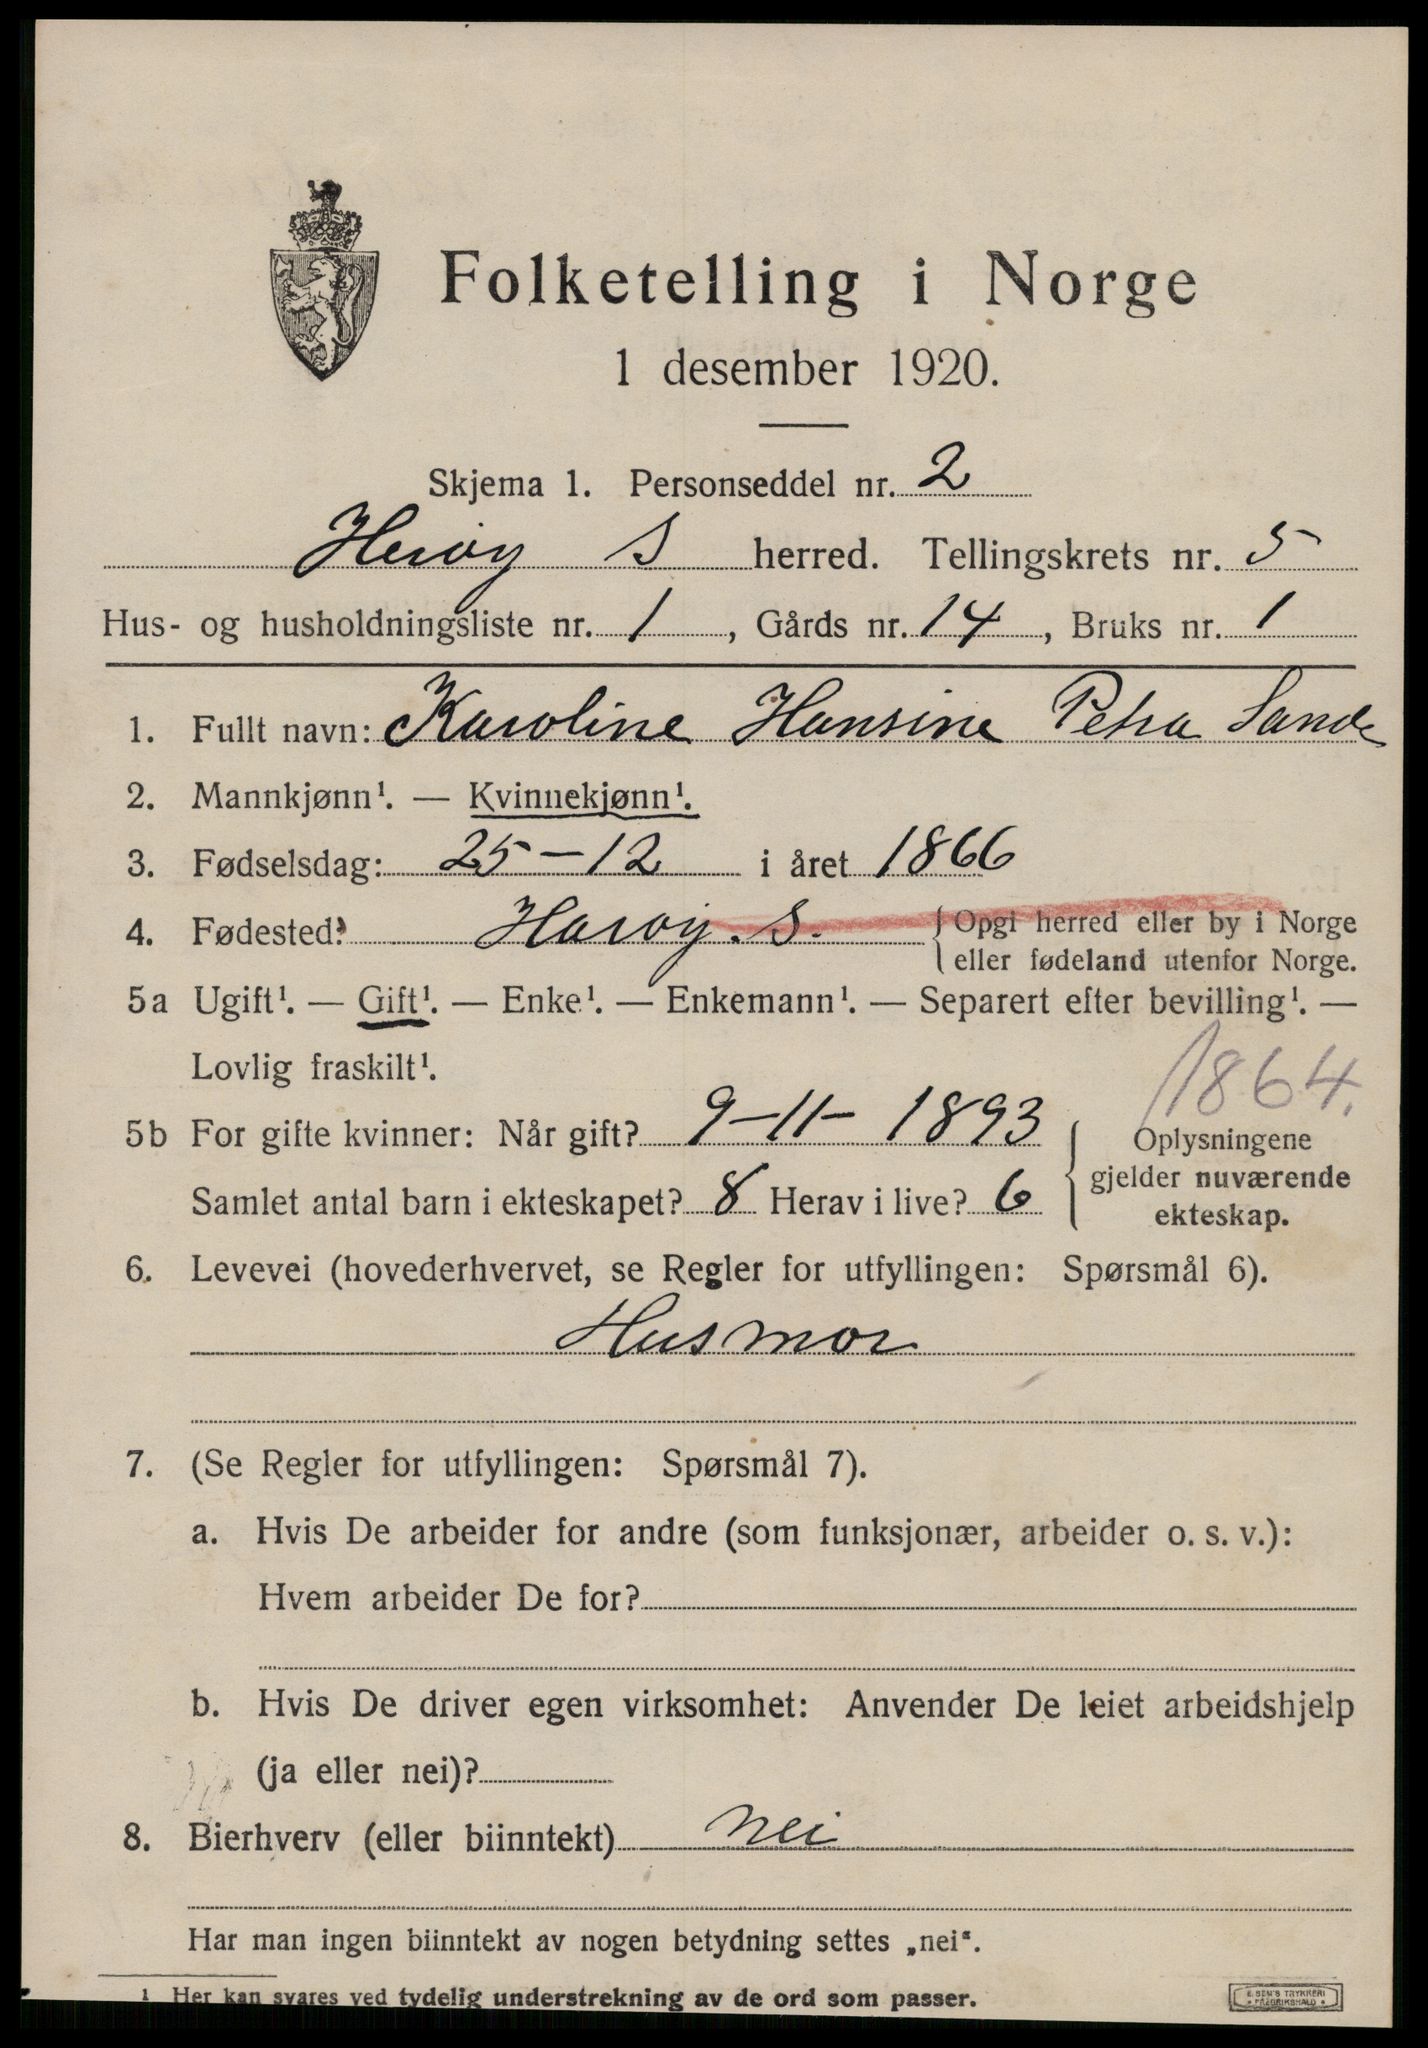 Folketelling i Norge
1 desember 1920.
Skjema 1. Personseddel nr. 2
Herøy S herred. Tellingskrets nr. 5
Hus- og husholdningsliste nr. 1, Gårds nr. 14, Bruks nr. 1
1. Fullt navn: Karoline Hansine Petra Sande
2. Mannkjønn¹. — Kvinnekjønn¹.
3. Fødselsdag: 25-12 i året 1866
4. Fødested: Harøy. S. { Opgi herred eller by i Norge
eller fødeland utenfor Norge.
5a Ugift¹. — Gift¹. — Enke¹. — Enkemann¹. — Separert efter bevilling¹. —
Lovlig fraskilt¹.
1864.
5b For gifte kvinner: Når gift? 9-11-1893 { Oplysningene
gjelder nuværende
Samlet antal barn i ekteskapet? 8 Herav i live? 6
ekteskap.
6. Levevei (hovederhvervet, se Regler for utfyllingen: Spørsmål 6).
Husmor
7. (Se Regler for utfyllingen: Spørsmål 7).
a. Hvis De arbeider for andre (som funksjonær, arbeider o. s. v.):
Hvem arbeider De for?
b. Hvis De driver egen virksomhet: Anvender De leiet arbeidshjelp
(ja eller nei)?
8. Bierhverv (eller biinntekt) nei
Har man ingen biinntekt av nogen betydning settes „nei“.
¹ Her kan svares ved tydelig understrekning av de ord som passer.
E. SEM'S TRYKKERI
FREDRIKSHALD